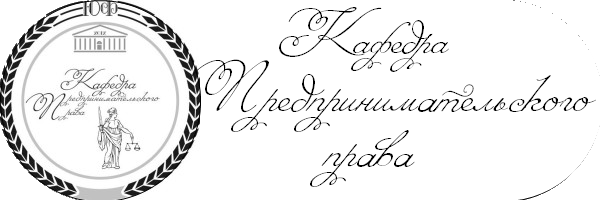 ЮФ
Кафедра
Предпринимательского
Права
Кафедра
Предпринимательского
права